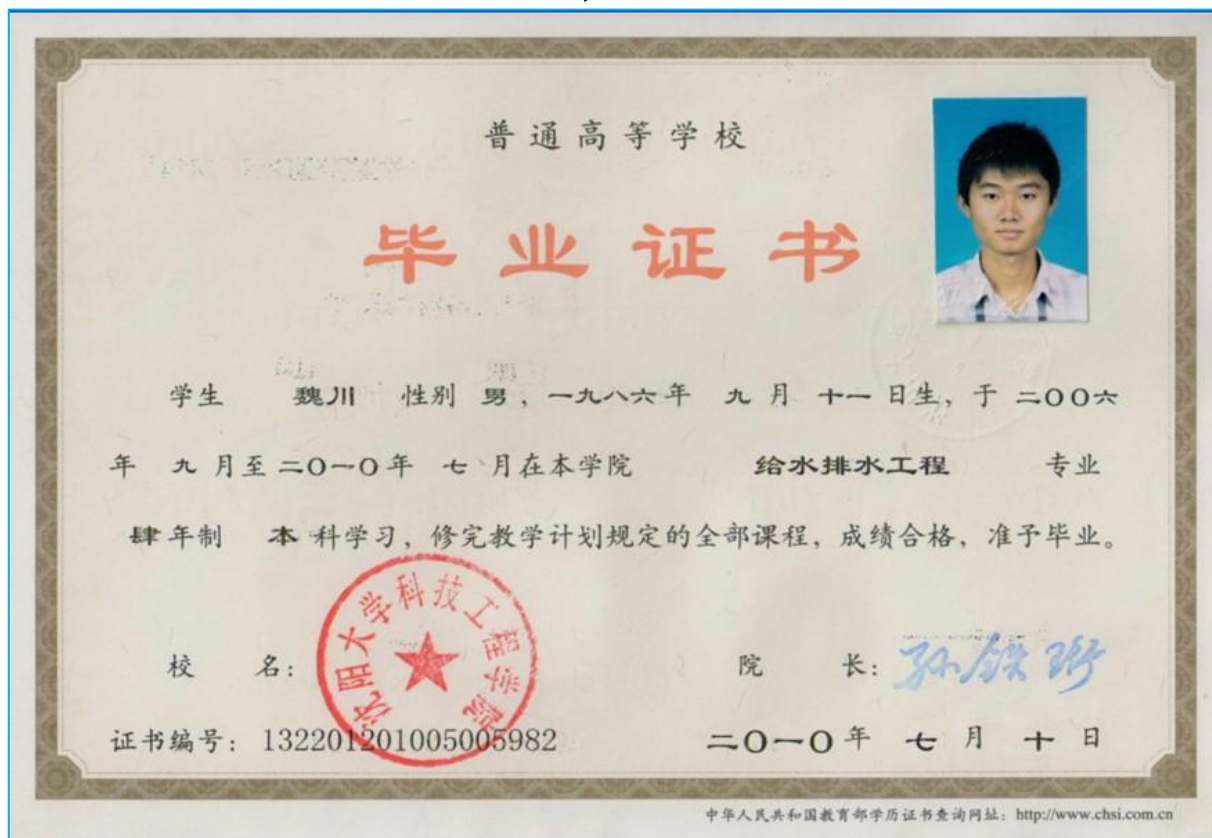 普通高等学校
毕业证书
学生 魏川 性别 男，一九八六年 九 月 十一 日生，于 二00六
年 九 月至 二0一0 年 七 月在本学院 给水排水工程 专业
肆 年制 本 科学习，修完教学计划规定的全部课程，成绩合格，准予毕业。
沈阳大学科技工程学院
校 名： 院 长：孙铁珩
证书编号：132201201005005982 二0一0 年 七 月 十 日
中华人民共和国教育部学历证书查询网址：http://www.chsi.com.cn